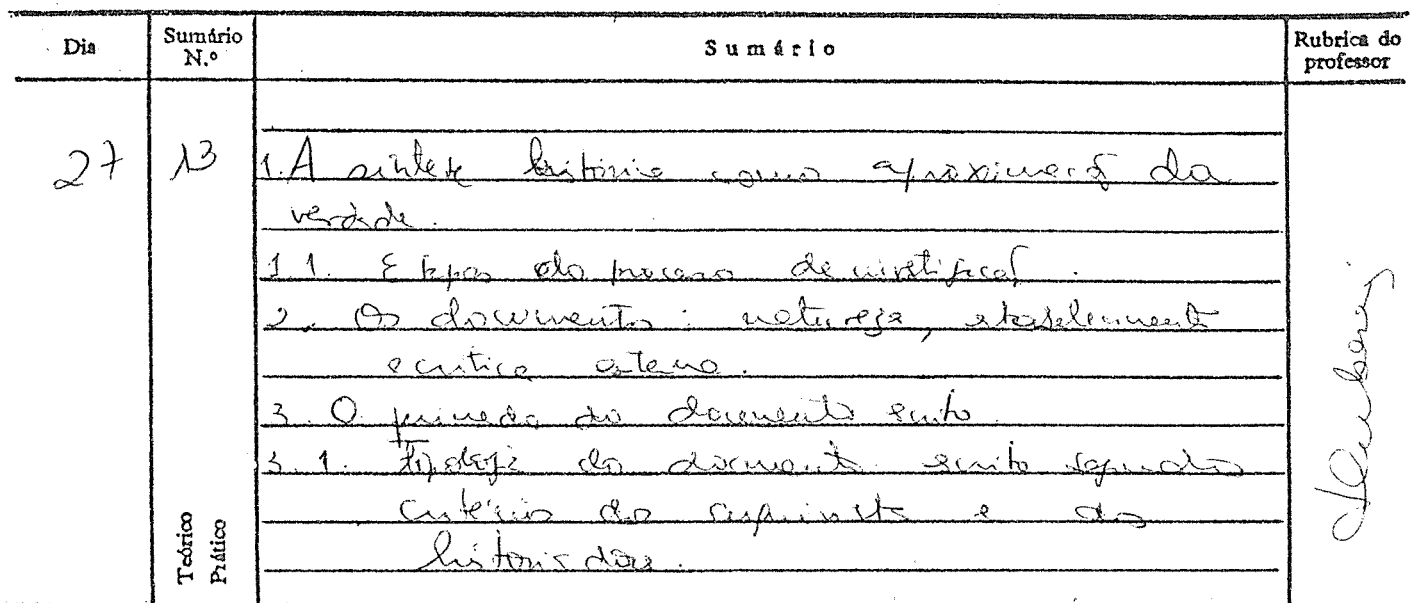 Dia
Sumário N.º
Sumário
Rubrica do professor
27
13
1. A síntese histórica como aproximação da
verdade.
1.1. Etapas do processo de investigação.
2. Os documentos: natureza, estabelecimento
e crítica externa.
3. O primado do documento escrito
3.1. Tipologia do documento escrito segundo
critérios do arquivista e do
historiador.
Teórico
Prático